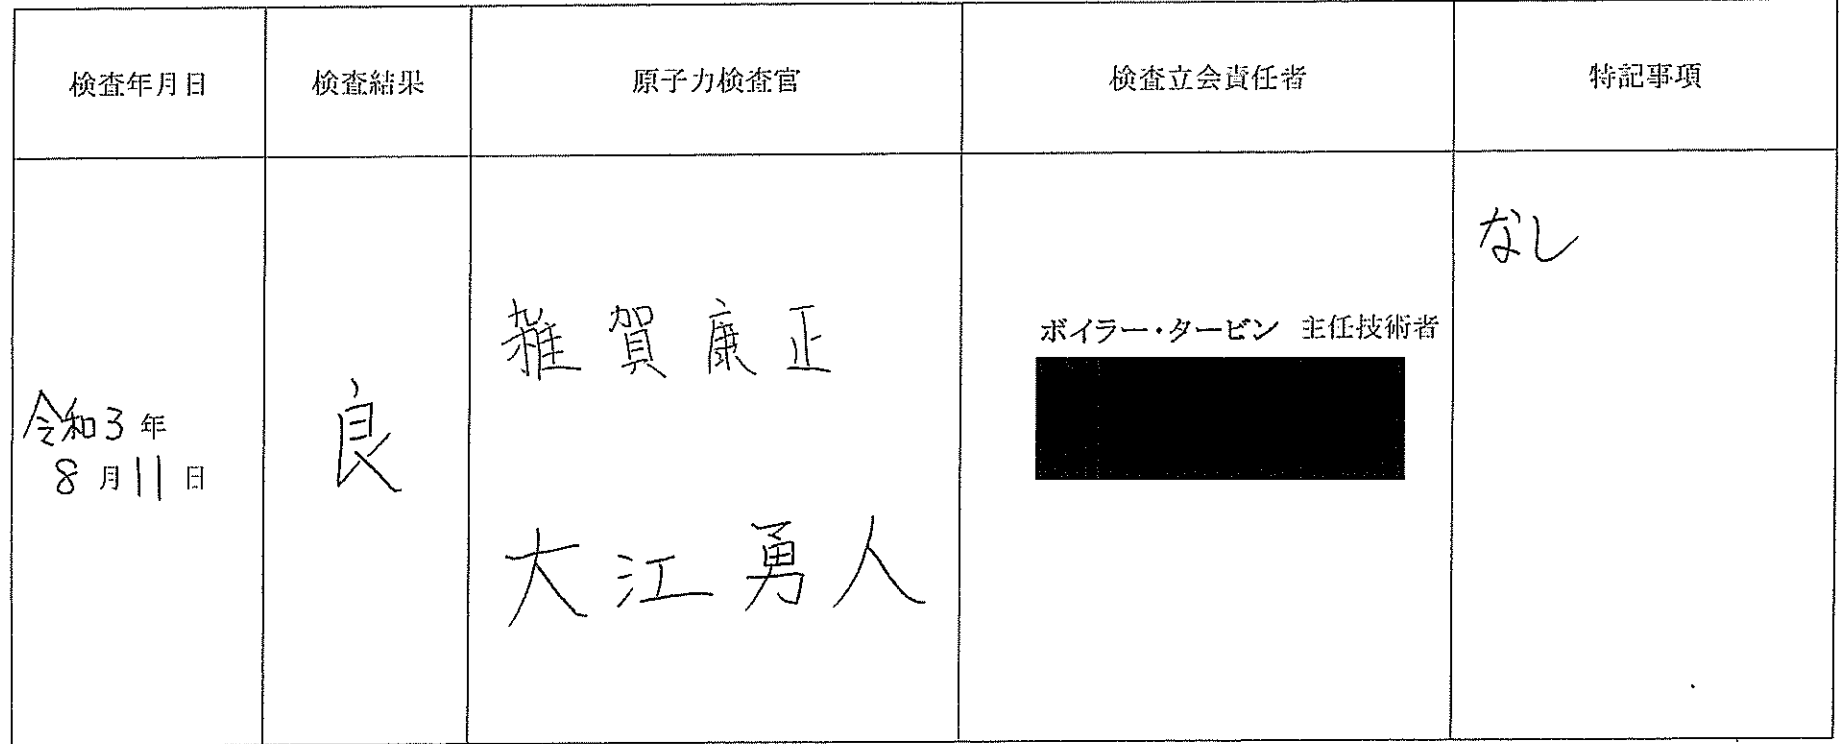 検査年月日
検査結果
原子力検査官
検査立会責任者
特記事項
令和3年
8月11日
良
雑賀康正
大江勇人
ボイラー・タービン 主任技術者
なし